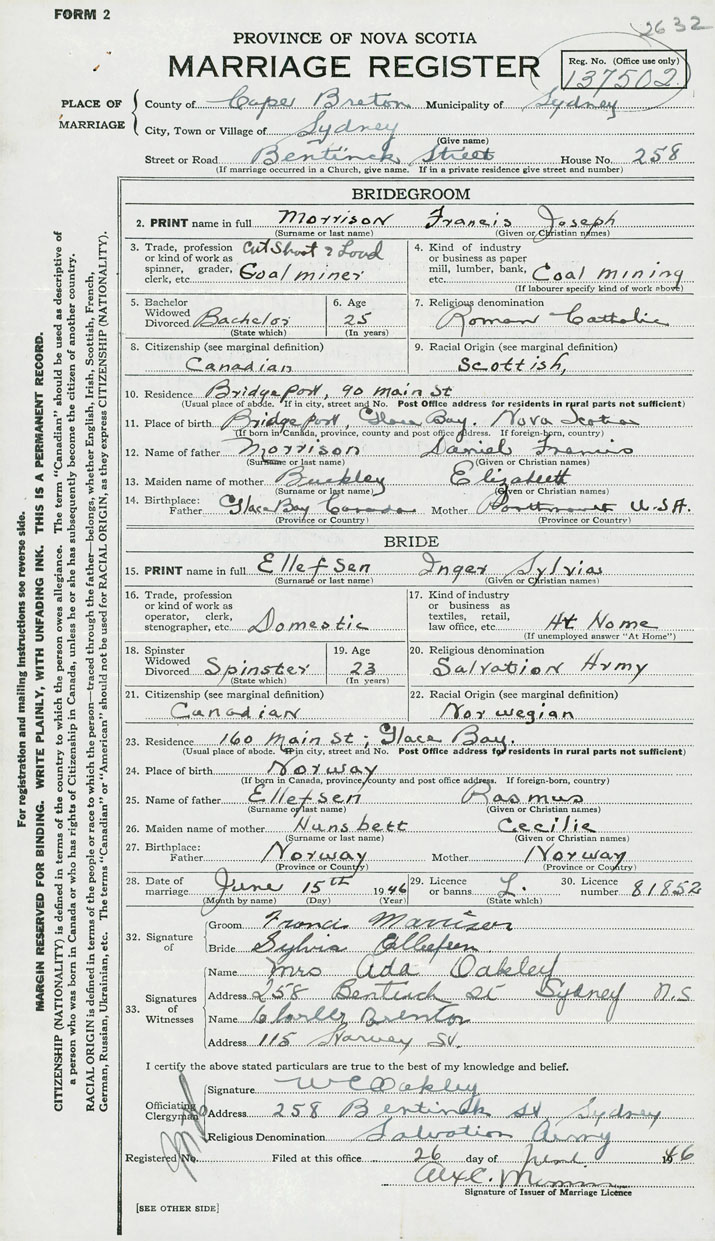 FORM 2
2632
PROVINCE OF NOVA SCOTIA
MARRIAGE REGISTER
Reg. No. (Office use only)
137502
PLACE OF MARRIAGE
County of Cape Breton Municipality of Sydney
City, Town or Village of Sydney
(Give name)
Street or Road Bentinck Street House No. 258
(If marriage occurred in a Church, give name. If in a private residence give street and number)
BRIDEGROOM
2. PRINT name in full Morrison Francis Joseph
(Surname or last name) (Given or Christian names)
3. Trade, profession or kind of work as spinner, grader, clerk, etc. Cut Shoot & Load Coal miner
4. Kind of industry or business as paper mill, lumber, bank, etc. Coal mining
(If labourer specify kind of work above)
5. Bachelor Widowed Divorced Bachelor
(State which)
6. Age 25
(In years)
7. Religious denomination
Roman Catholic
8. Citizenship (see marginal definition)
Canadian
9. Racial Origin (see marginal definition)
Scottish,
10. Residence Bridgeport, 90 Main St
(Usual place of abode. If in city, street and No. Post Office address for residents in rural parts not sufficient)
11. Place of birth Bridgeport, Glace Bay. Nova Scotia
(If born in Canada, province, county and post office address. If foreign-born, country)
12. Name of father Morrison Daniel Francis
(Surname or last name) (Given or Christian names)
13. Maiden name of mother Buckley Elizabeth
(Surname or last name) (Given or Christian names)
14. Birthplace: Father Glace Bay Canada Mother U.S.A.
(Province or Country) (Province or Country)
BRIDE
15. PRINT name in full Ellefsen Inger Sylvia
(Surname or last name) (Given or Christian names)
16. Trade, profession or kind of work as operator, clerk, stenographer, etc. Domestic
17. Kind of industry or business as textiles, retail, law office, etc. At Home
(If unemployed answer "At Home")
18. Spinster Widowed Divorced Spinster
(State which)
19. Age 23
(In years)
20. Religious denomination
Salvation Army
21. Citizenship (see marginal definition)
Canadian
22. Racial Origin (see marginal definition)
Norwegian
23. Residence 160 Main St; Glace Bay.
(Usual place of abode. If in city, street and No. Post Office address for residents in rural parts not sufficient)
24. Place of birth Norway
(If born in Canada, province, county and post office address. If foreign-born, country)
25. Name of father Ellefsen Rasmus
(Surname or last name) (Given or Christian names)
26. Maiden name of mother Hunsbett Cecilie
(Surname or last name) (Given or Christian names)
27. Birthplace: Father Norway Mother Norway
(Province or Country) (Province or Country)
28. Date of marriage June 15th 1946
(Month by name) (Day) (Year)
29. Licence or banns L.
(State which)
30. Licence number 81852
32. Signature of
Groom Francis Morrison
Bride Sylvia Ellefsen
33. Signatures of Witnesses
Name Mrs Ada Oakley
Address 258 Bentinck St Sydney N.S
Name Brenton
Address 115 Harvey St.
I certify the above stated particulars are true to the best of my knowledge and belief.
Officiating Clergyman
Signature W C Oakley
Address 258 Bentinck St Sydney
Religious Denomination Salvation Army
Registered No. Filed at this office 26 day of 1946
Signature of Issuer of Marriage Licence
[SEE OTHER SIDE]
For registration and mailing instructions see reverse side.
MARGIN RESERVED FOR BINDING. WRITE PLAINLY, WITH UNFADING INK. THIS IS A PERMANENT RECORD.
CITIZENSHIP (NATIONALITY) is defined in terms of the country to which the person owes allegiance. The term "Canadian" should be used as descriptive of
a person who was born in Canada or who has rights of Citizenship in Canada, unless he or she has subsequently become the citizen of another country.
RACIAL ORIGIN is defined in terms of the people or race to which the person—traced through the father—belongs, whether English, Irish, Scottish, French,
German, Russian, Ukrainian, etc. The terms "Canadian" or "American" should not be used for RACIAL ORIGIN, as they express CITIZENSHIP (NATIONALITY).